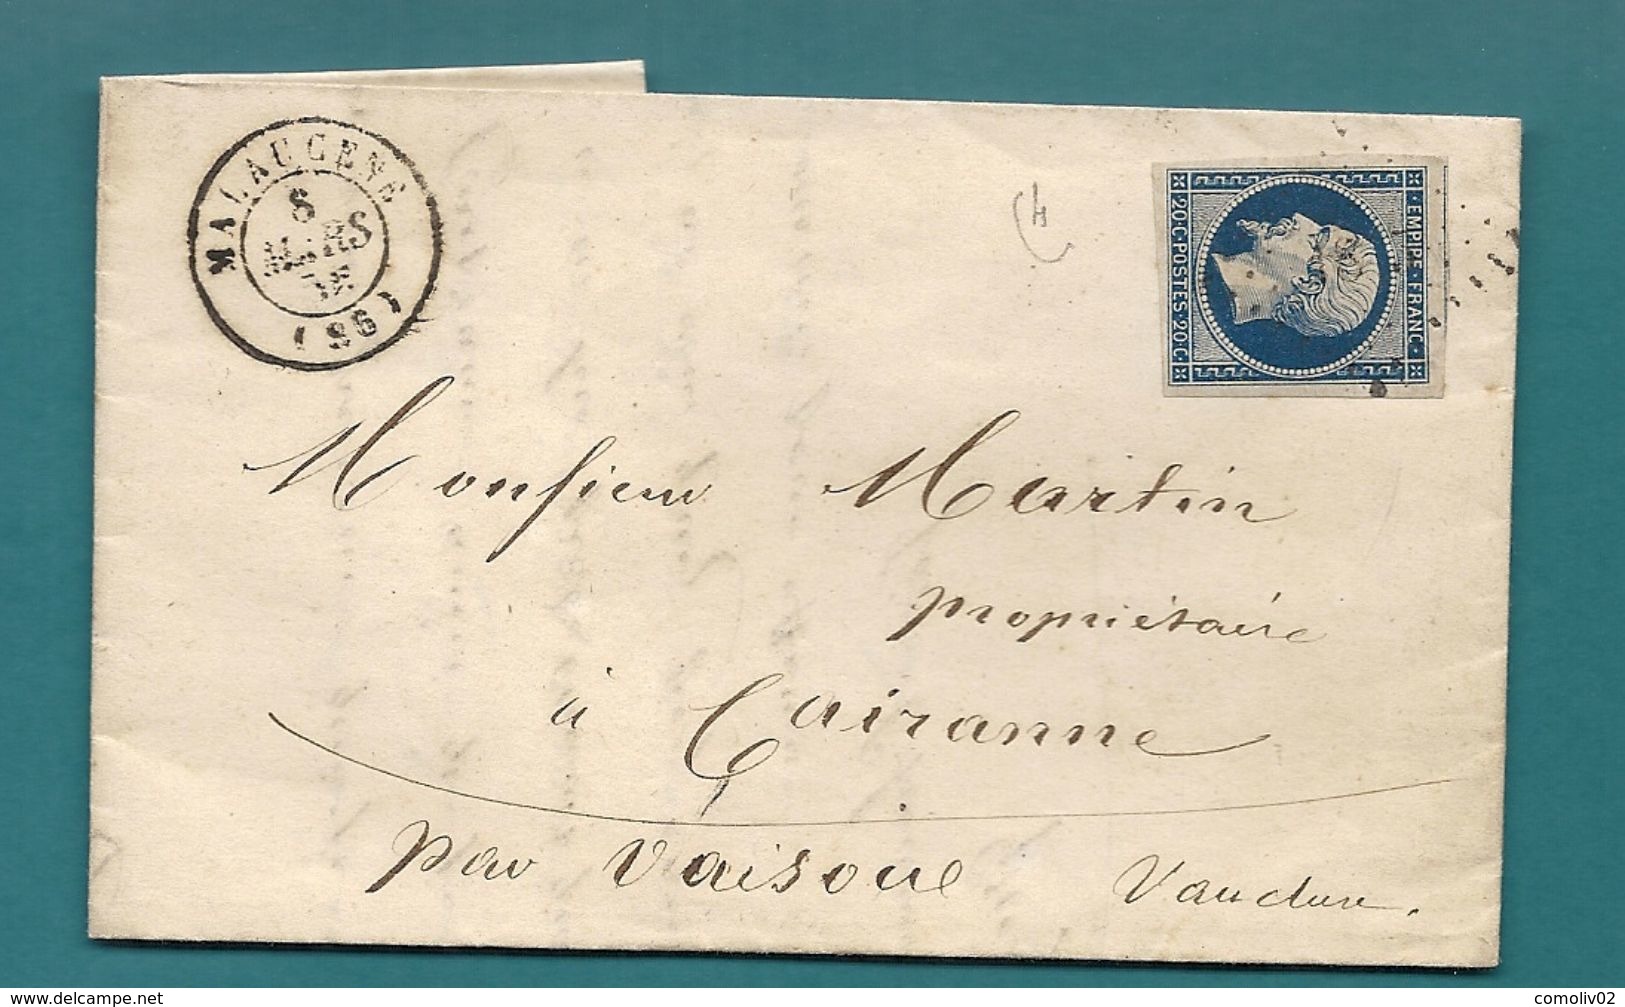 MALAUCENE
8
MARS
(86)
EMPIRE · FRANC ·
20 · C · POSTES · 20 · C ·
Monsieur Martin
propriétaire
à Cairanne
par Vaison Vaucluse.
www.delcampe.net
comoliv02